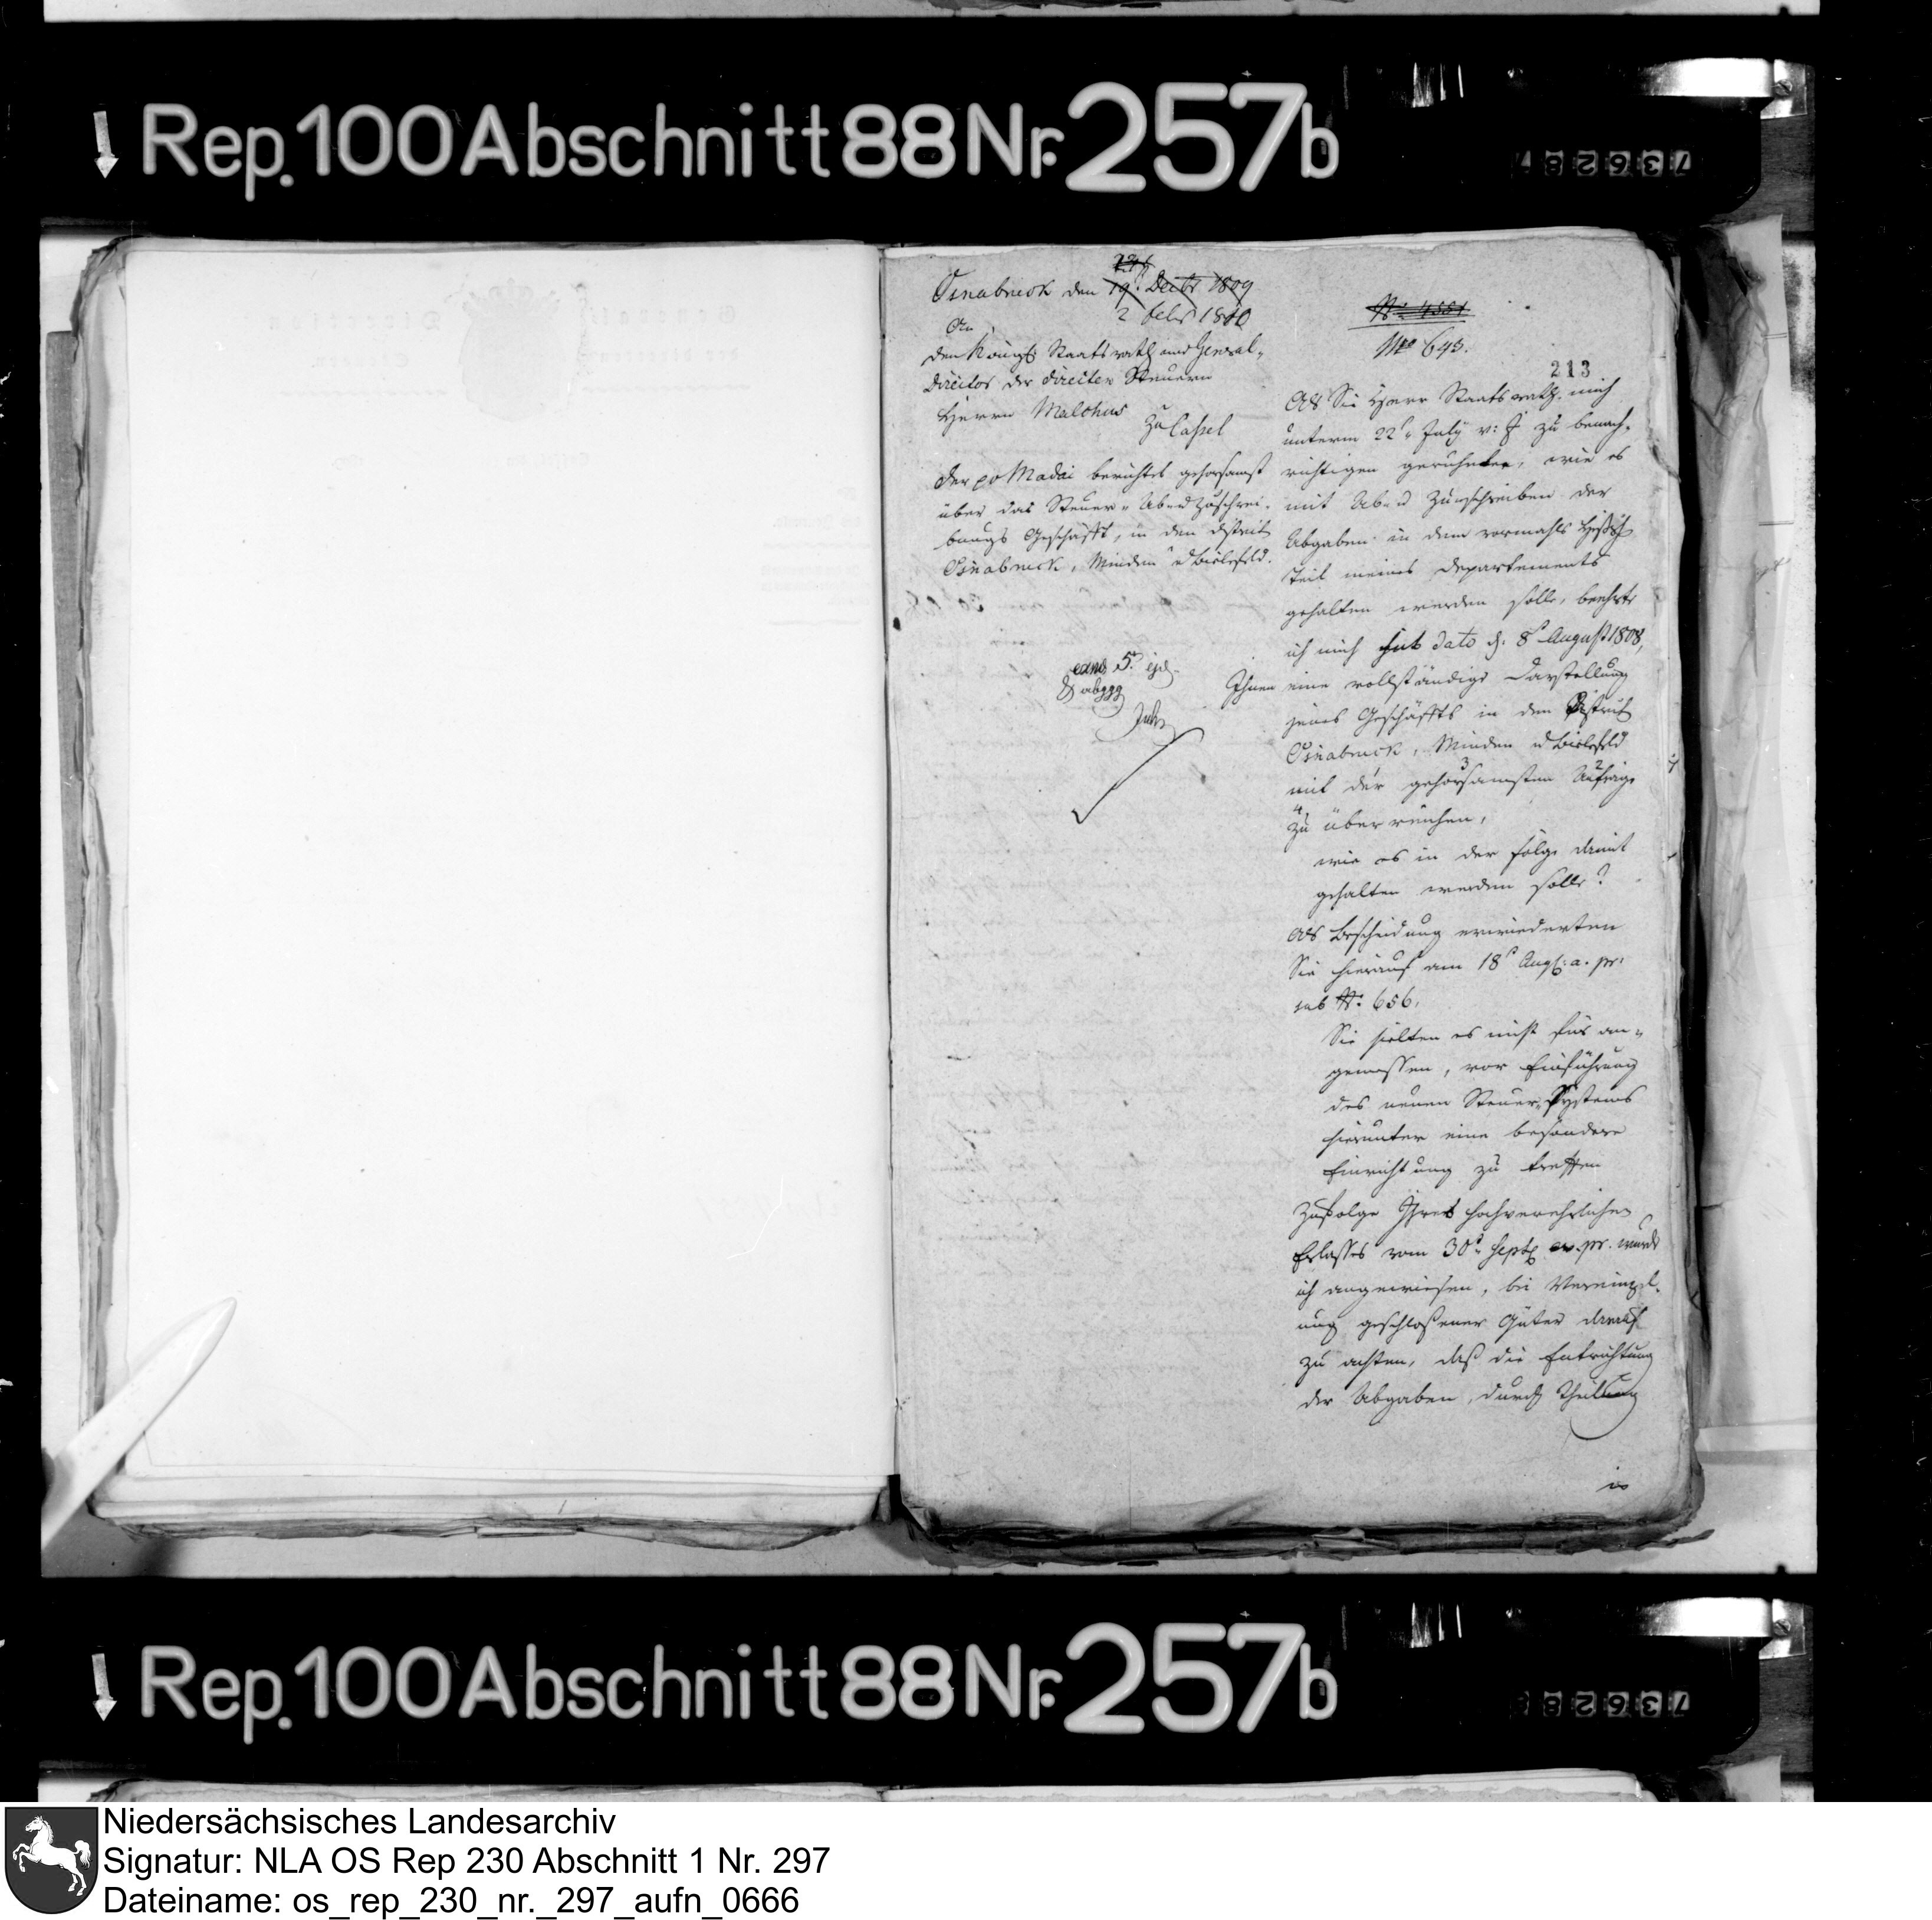 Rep. 100 Abschnitt 88 Nr. 257b
736287
Osnabrück den 19t Decbr 1809
2 Febr 1810
An
den Königl Staatsrath und General-
Director der directen Steuern
Herrn Malchus
zu Cassel
Der pp Madai berichtet gehorsamst
über das Steuer- Ab und Zuschrei-
bungs Geschäfft, in den District
Osnabrück, Minden u Bielefeld.
5. ej.
No 4551
No 643.
213
Als Sie Herr Staatsrath mich
unterm 22t July v: J zu benach-
richtigen geruheten, wie es
mit Ab u Zuschreiben der
Abgaben in dem vormahls
Theil meines Departements
gehalten werden solle, beehrte
ich mich sub dato d. 8t August 1808,
Ihnen eine vollständige Darstellung
jenes Geschäffts in den District
Osnabrück, Minden u Bielefeld
mit der gehorsamsten Anfrage
zu überreichen,
wie es in der Folge damit
gehalten werden solle?
Als Bescheidung erwiederten
Sie hierauf am 18t Aug: a. pr.
sub No: 656.
Sie hielten es nicht für an-
gemessen, vor Einführung
des neuen Steuer-Systems
hierunter eine besondere
Einrichtung zu treffen
Zufolge Ihres hochverehrlichen
Erlasses vom 30t Septbr a. pr. wurde
ich angewiesen, bei Vereinzel-
ung geschloßener Güter darauf
zu achten, daß die Entrichtung
der Abgaben, durch Theilung
Rep. 100 Abschnitt 88 Nr. 257b
73628
Niedersächsisches Landesarchiv
Signatur: NLA OS Rep 230 Abschnitt 1 Nr. 297
Dateiname: os_rep_230_nr._297_aufn_0666